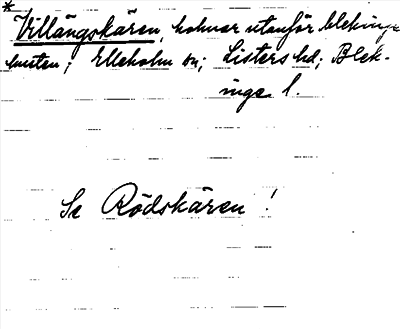 * Villängskären, holmar utanför blekinge
kusten; Elleholm sn; Listers hd; Blek-
inge l.
Se Rödskären!